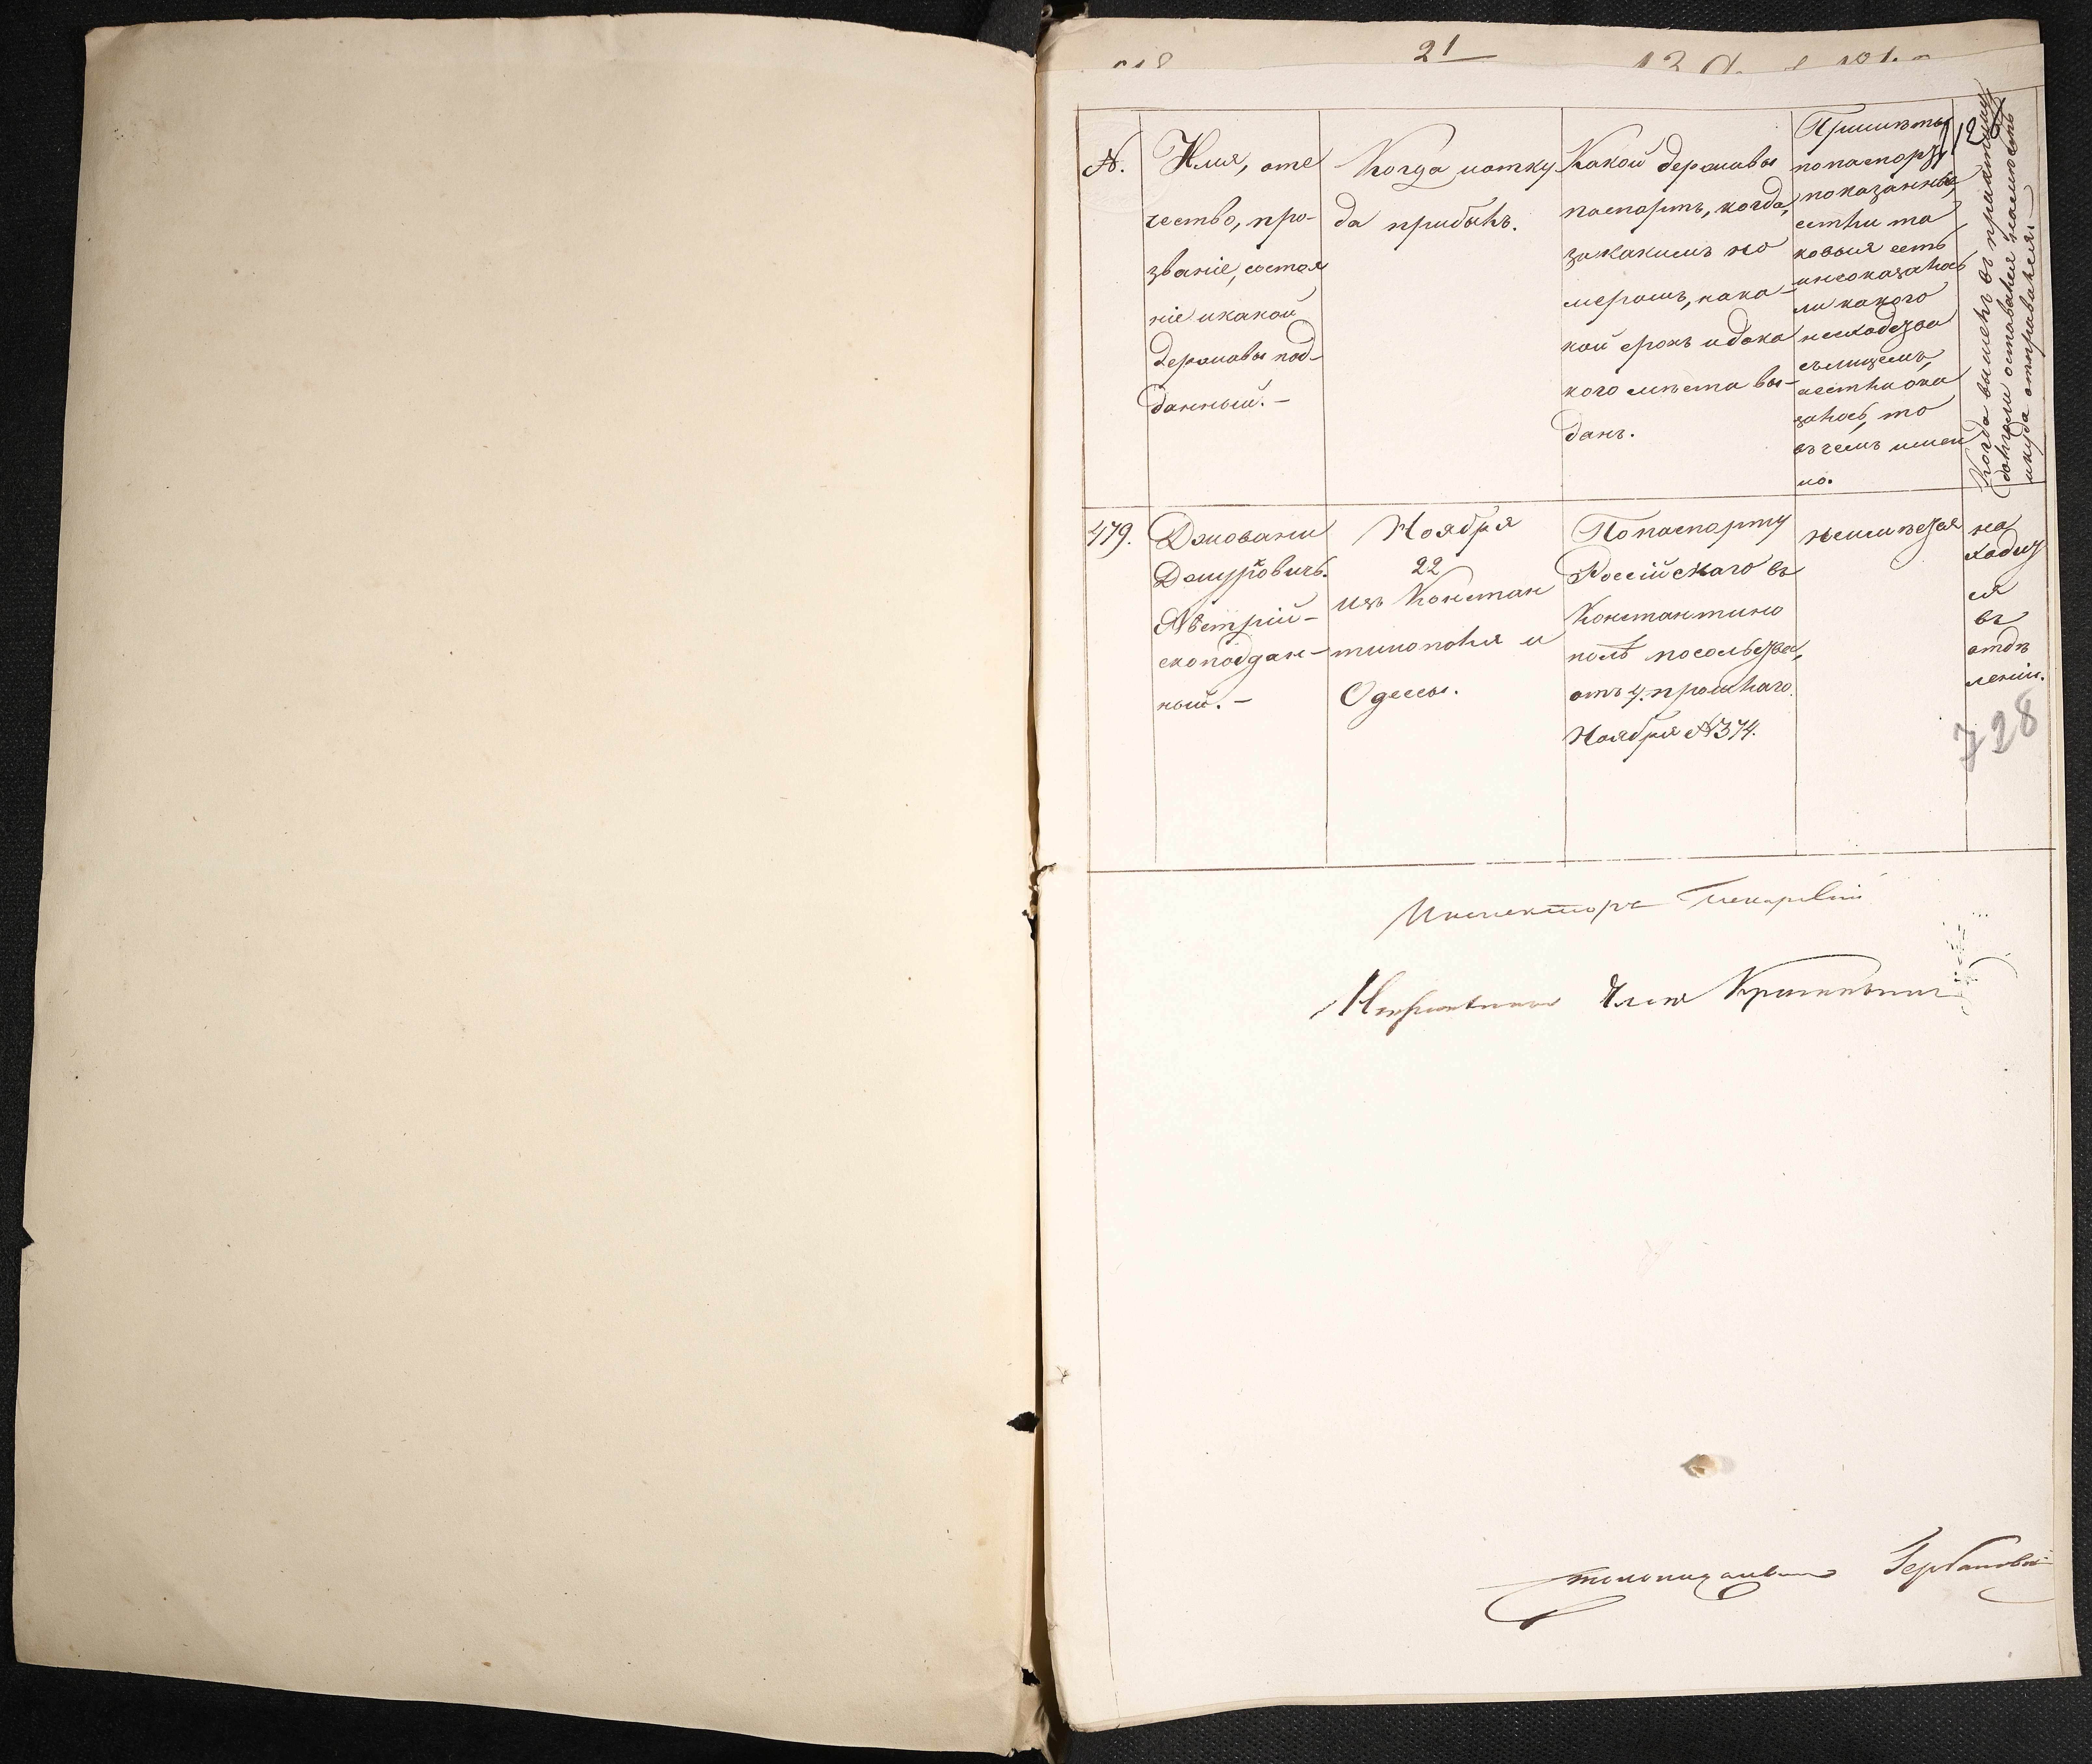 21
№.
Имя, оте
чество, про-
званіе, состоя
ніе и какой
державы под-
данный. –
Когда и отку
да прибылъ.
Какой державы
паспортъ, когда,
за какимъ но
меромъ, на ка-
кой срокъ и до ка
кого мѣста вы-
данъ.
Примѣты
по паспорту
показанныя,
естли та
ковыя есть
и не оказалось
ли какого
несходства
съ лицемъ,
а естли ока
залось, то
въ чемъ имен
но.
Когда вышелъ въ практику
долголи оставался на мѣстѣ
и куда отправился. –
12
479.
Джовани
Джуровичъ.
Австрій-
скоподдан-
ный. –
Ноября
22
изъ Констан
тинополя и
Одессы.
По паспорту
Россійскаго въ
Константино
полѣ посольства,
отъ 4. прошлаго
Ноября № 374.
Неимѣется
на
ходит
ся
въ
отдѣ
леніи.
728
Инспекторъ